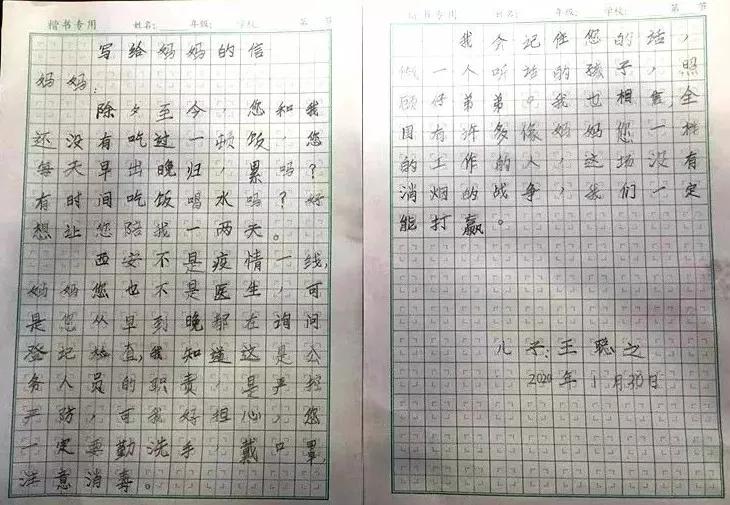 楷书专用 姓名: 年级: 学校: 第 节
写给妈妈的信
妈妈:
除夕至今,您和我
还没有吃过一顿饭,您
每天早出晚归,累吗?
有时间吃饭喝水吗?好
想让您陪我一两天。
西安不是疫情一线,
妈妈您也不是医生,可
是您从早到晚都在询问
登记检查,我知道这是公
务人员的职责,是严控
严防,可我好担心,您
一定要勤洗手,戴口罩,
注意消毒。
楷书专用 姓名: 年级: 学校: 第 节
我会记住您的话,
做一人听话的孩子,照
顾仔弟弟。我也相信,全
国有许多像妈妈您一样
的工作的人,这场没有
消烟的战争,我们一定
能打赢。
儿子:王聪之
2020年1月30日